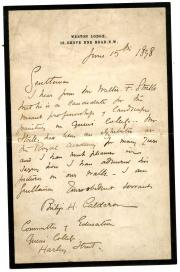 WESTON LODGE,
16, GROVE END ROAD, N.W.
June 15th 1898
Gentlemen
I hear from Mr Walter F. Stocks
that he is a Candidate for the
vacant professorship of Landscape
painting in Queens College. Mr
Stocks has been an exhibitor in
the Royal Academy for many years
and I have much pleasure in
saying how I have admired his
pictures on our walls. I am
Gentlemen Your obedient servant
Philip H Calderon
Committee of Education
Queens College
Harley Street.